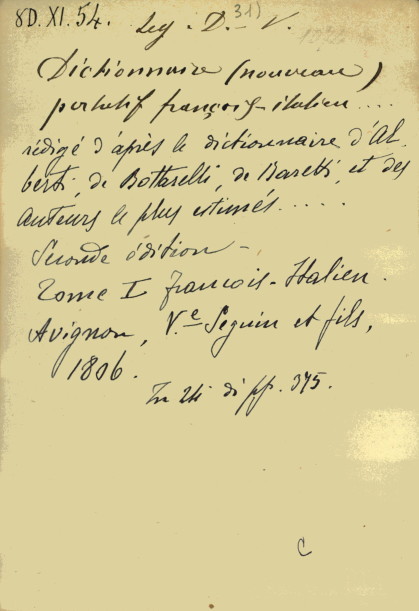 8D. XI. 54. Leg. D. V. 31)
Dictionnaire (nouveau)
portatif françois-italien....
rédigé d'après le dictionnaire d'Al-
berti, de Bottarelli, de Baretti, et des
auteurs le plus estimés.....
Seconde édition -
Tome I francois-Italien.
Avignon, V.e Seguin et fils,
1806.
In 24 di pp. 375.
C